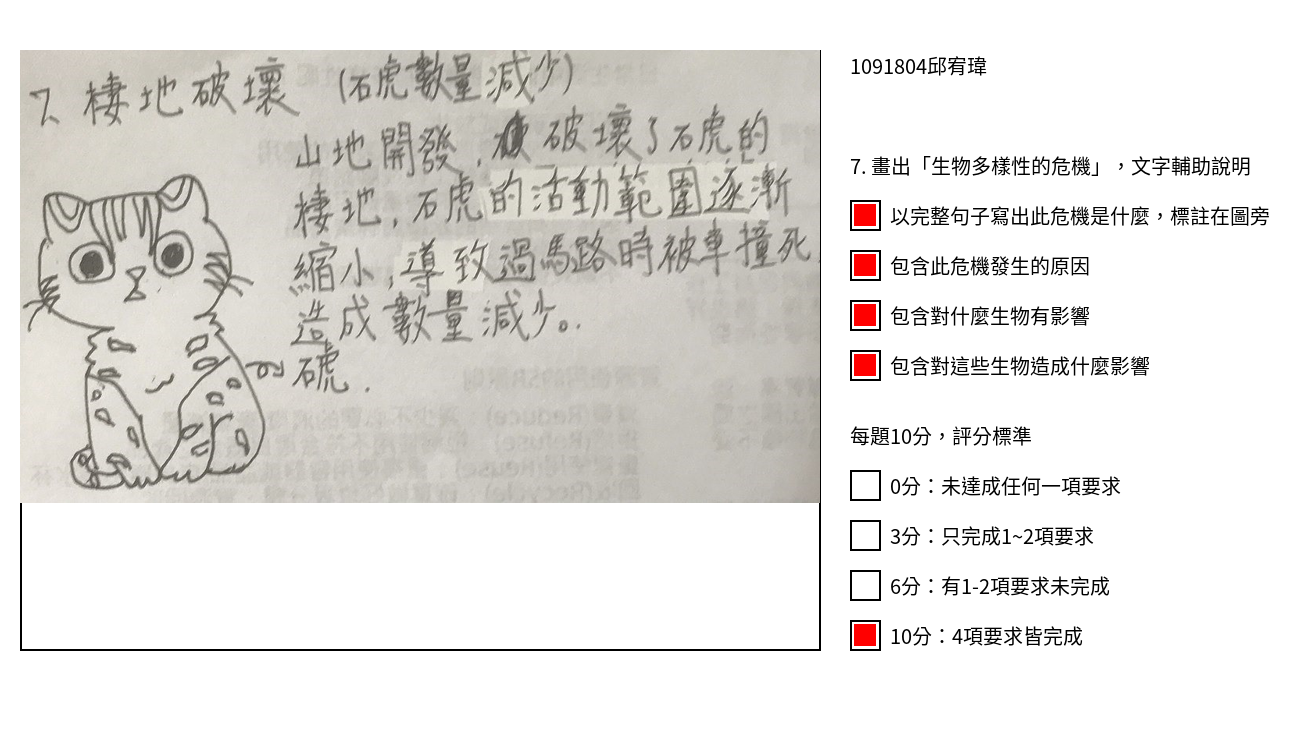 7. 棲地破壞 (石虎數量減少)
山地開發,破壞了石虎的
棲地,石虎的活動範圍逐漸
縮小,導致過馬路時被車撞死,
造成數量減少。
石虎.
1091804邱宥瑋
7. 畫出「生物多樣性的危機」，文字輔助說明
以完整句子寫出此危機是什麼，標註在圖旁
包含此危機發生的原因
包含對什麼生物有影響
包含對這些生物造成什麼影響
每題10分，評分標準
0分：未達成任何一項要求
3分：只完成1~2項要求
6分：有1-2項要求未完成
10分：4項要求皆完成